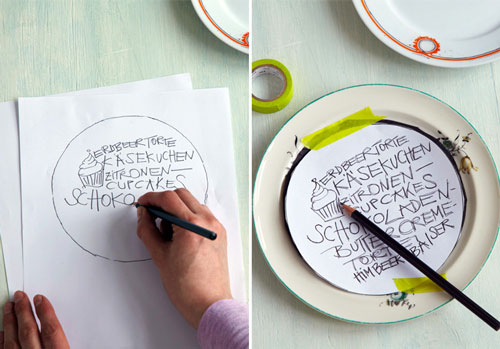 ERDBEERTORTE
KÄSEKUCHEN
ZITRONEN-
CUPCAKES
SCHOKO
ERDBEERTORTE
KÄSEKUCHEN
ZITRONEN-
CUPCAKES
SCHOKOLADEN-
BUTTERCREME-
TORTE
HIMBEERBAISER